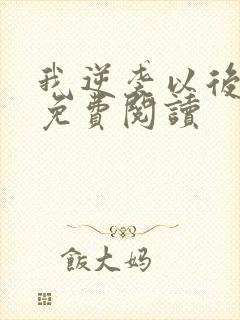 我逆袭以後
免費閱讀
飯大妈